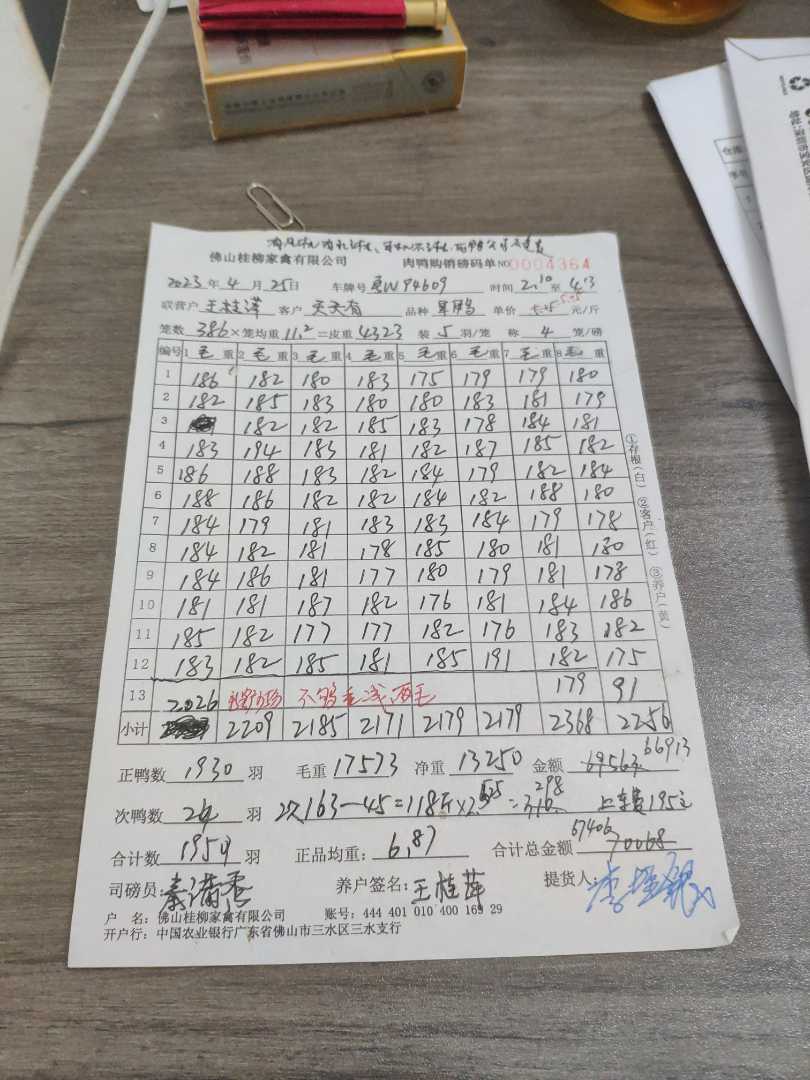 佛山桂柳家禽有限公司 肉鸭购销磅码单 NO 0004364
2023年4月25日 车牌号 粤W94609 时间 2:10 至 4:3
联营户 王桂萍 客户 天天有 品种 单价 5.25 5.05 元/斤
笼数 386×笼均重 11.2=皮重 4323 装 5 羽/笼 称 4 笼/磅
编号 1 毛重 2 毛重 3 毛重 4 毛重 5 毛重 6 毛重 7 毛重 8 毛重
1 186 182 180 183 175 179 179 180
2 182 185 183 180 180 183 181 179
3 182 182 185 183 178 184 181
4 183 194 183 181 182 187 185 182
5 186 188 183 182 184 179 182 184
6 188 186 182 182 184 182 188 180
7 184 179 181 183 183 184 179 178
8 184 182 181 178 185 180 181 180
9 184 186 181 177 180 179 181 178
10 181 181 187 182 176 181 184 186
11 185 182 177 177 182 176 183 182
12 183 182 185 181 185 191 182 175
13 2026 不够毛减两毛 179 91
小计 2209 2185 2171 2179 2179 2368 2256
正鸭数 1930 羽 毛重 17573 净重 13250 金额 69563 66913
次鸭数 24 羽 次163-45=118斤×2.525=298 上车费195元
合计数 1954 羽 正品均重: 6.87 合计总金额 70068 67406
司磅员: 养户签名: 王桂萍 提货人:
户 名: 佛山桂柳家禽有限公司 账号: 444 401 010 400 169 29
开户行: 中国农业银行广东省佛山市三水区三水支行
①存根(白) ②客户(红) ③养户(黄)